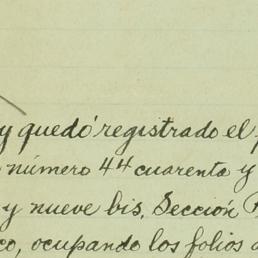 y quedó registrado el
número 44 cuarenta y
y nueve bis, Sección
ocupando los folios